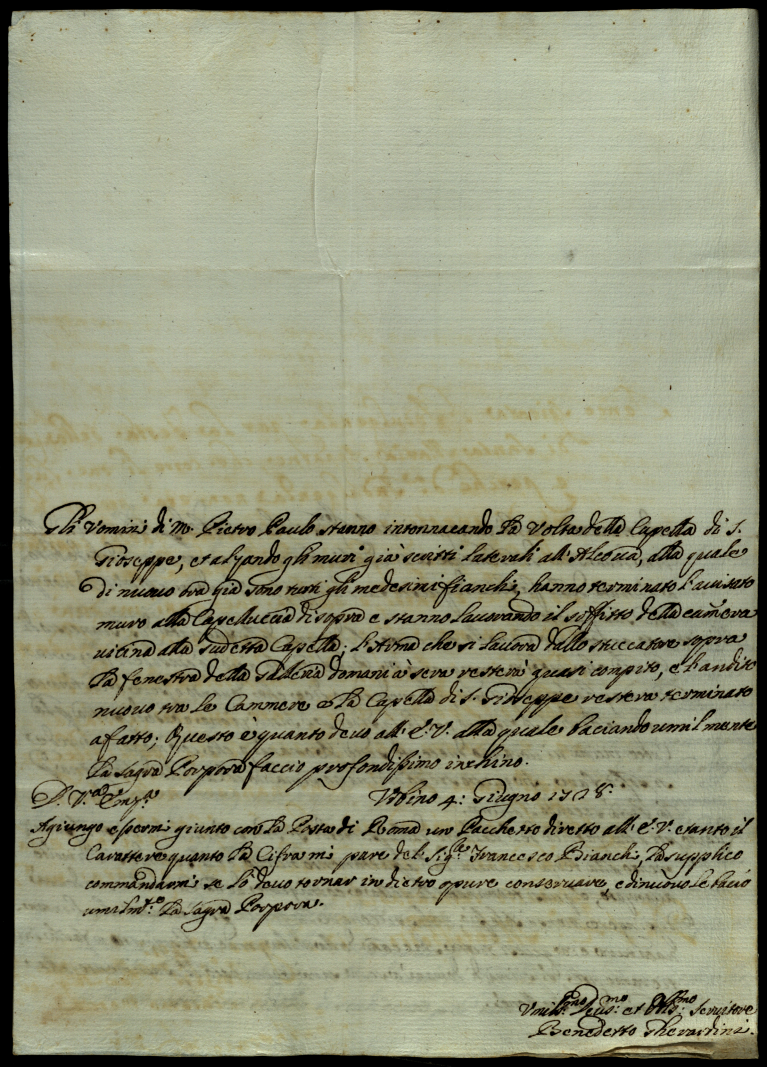 Gli Vomini di M. Pietro Paulo stanno intonnacando la Volta della Capella di S.
Gioseppe, et alzando gli muri già scritti laterali all'Alcova, alla quale
di nuovo già sono tutti gli medesimi fianchi, hanno terminato l'avisato
muro alla Capelluccia di sopra e stanno lavorando il soffitto della camera
vicina alla sudetta Capella; l'Arma che si lavora dallo stuccatore sopra
la fenestra della Galleria domani à sera resterà quasi compito, e l'andito
nuovo tra le Cammere e la Capella di S. Gioseppe resterà terminato
afatto; Questo è quanto devo all'E.V. alla quale baciando umilmente
la sagra Porpora faccio profondissimo inchino.
D. V.ra Em.za Vrbino 4: Giugno 1728.
Agiungo essermi giunto con la Posta di Roma un Pacchetto diretto all'E.V. e tanto il
Carattere quanto la Cifra mi pare del Sig.re Francesco Bianchi, la supplico
commandarmi se lo devo tornar in dietro opure conservare, e di nuovo le bacio
umilm.te la sagra Porpora.
Vmiliss.mo Dev.mo et Obblig.mo Servitore
Benedetto Gherardini.